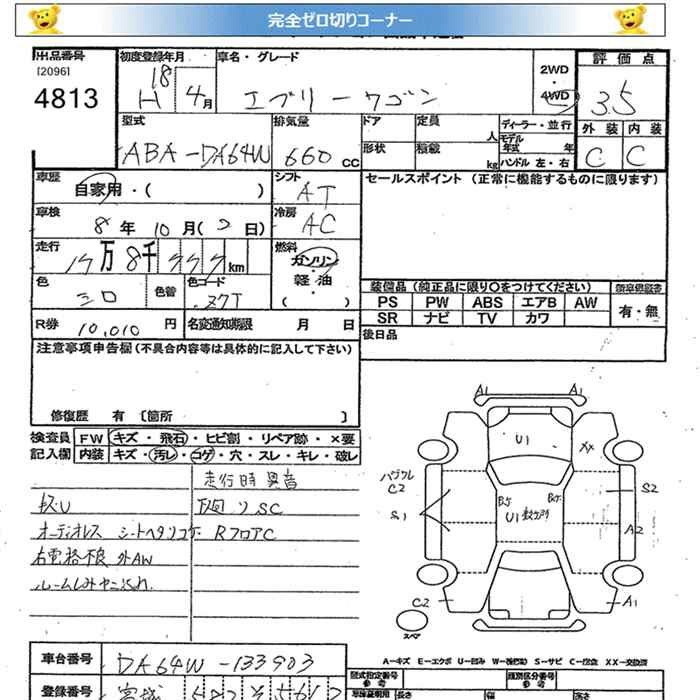 完全ゼロ切りコーナー
出品番号
[2096]
4813
初度登録年月
H 18 4月
車名・グレード
エブリーワゴン
2WD
・
4WD
評価点
3.5
外装 内装
C C
型式
ABA-DA64W
排気量
660 cc
ドア
定員
人
形状
積載
kg
ディーラー・並行
モデル年式 年
ハンドル 左・右
車歴
自家用・( )
シフト
AT
セールスポイント (正常に機能するものに限ります)
車検
8年 10月( 日)
冷房
AC
走行
万8千
km
燃料
ガソリン
・
軽油
・
( )
色
シロ
色替
色コード
26T
装備品 (純正品に限り○をつけてください)
PS PW ABS エアB AW
SR ナビ TV カワ
有・無
R券 10,010 円
名変通知期限 月 日
後日品
注意事項申告欄(不具合内容等は具体的に記入して下さい)
修復歴 有 〔箇所 〕
検査員 FW キズ・飛石・ヒビ割・リペア跡・×要
記入欄 内装 キズ・汚レ・コゲ・穴・スレ・キレ・破レ
走行時異音
下廻りSC
オーディオレス シートヘタリコゲ RフロアC
右電格不良 外AW
ルームしみヤニ汚れ
A1 A1
U1
XX
C2
S1
S2
U1
A2
C2
A1
スペア
A-キズ E-エクボ U-凹み S-サビ C-腐食 XX-交換済
車台番号
DA64W-133903
登録番号
宮城
型式指定番号
類別区分番号
長さ
幅
高さ